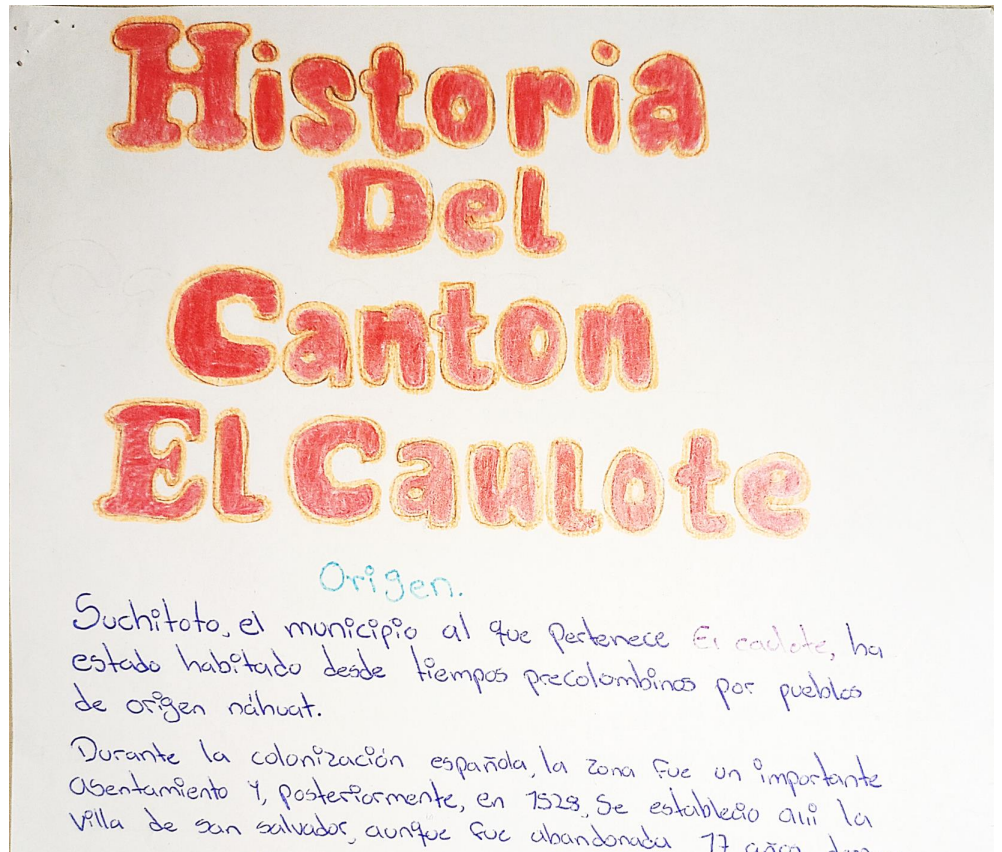 Historia
Del
Canton
El Caulote
Origen.
Suchitoto, el municipio al que Pertenece El caulote, ha
estado habitado desde tiempos precolombinos por pueblos
de origen náhuat.
Durante la colonización española, la zona fue un importante
asentamiento y, posteriormente, en 1528, se establecio alli la
villa de san salvador, aunque fue abandonada 17 años